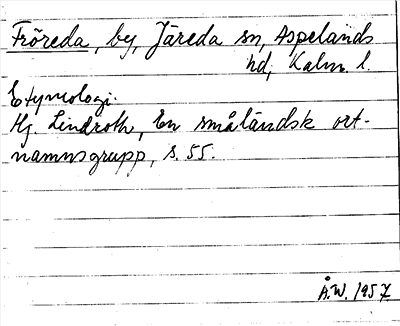 Fröreda, by, Järeda sn, Aspelands
hd, Kalm. l.
Etymologi.
Hj. Lindroth, En småländsk ort-
namnsgrupp, s. 55.
Å.W. 1957.